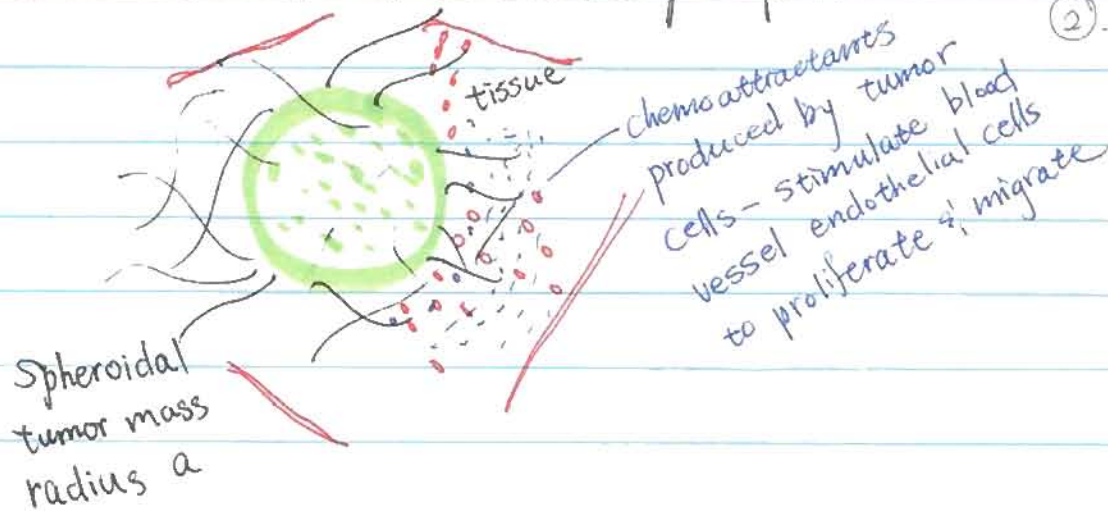 2
tissue
chemoattractants
produced by tumor
cells - stimulate blood
vessel endothelial cells
to proliferate & migrate
Spheroidal
tumor mass
radius a